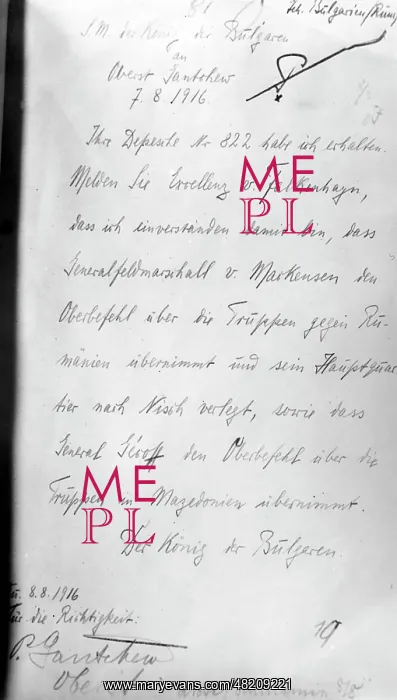 Bulgarien/Rum
S.M. der König der Bulgaren
an
Oberst Gantschew
7. 8. 1916.
Ihre Depesche Nr 822 habe ich erhalten.
Melden Sie Excellenz v. Falkenhayn,
dass ich einverstanden damit bin, dass
Generalfeldmarschall v. Markensen den
Oberbefehl über die Truppen gegen Ru-
mänien übernimmt und sein Hauptquar
tier nach Nisch verlegt, sowie dass
General Gécoff den Oberbefehl über die
Truppen in Mazedonien übernimmt.
Der König der Bulgaren.
8.8.1916
für die Richtigkeit:
P. Gantschew
19
ME
PL
ME
PL
www.maryevans.com/48209221